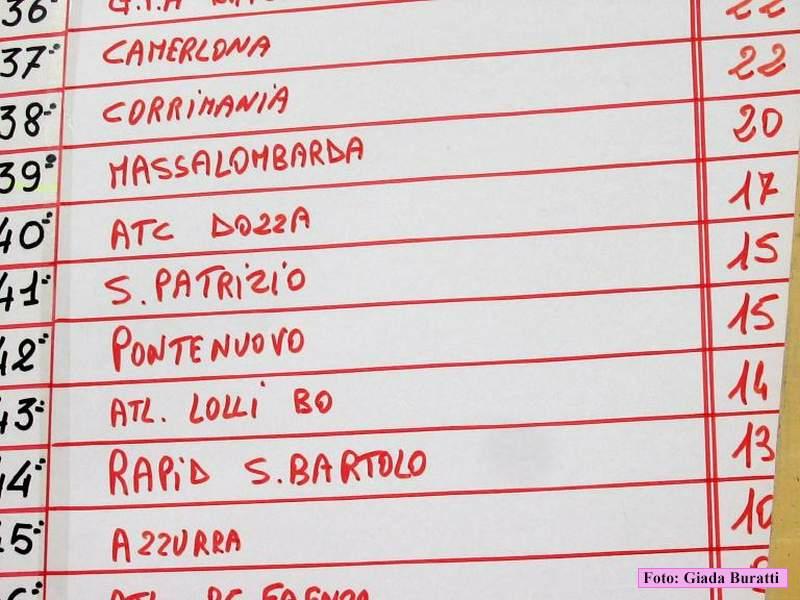 36°
37° CAMERLONA 22
38° CORRIMANIA 22
39° MASSALOMBARDA 20
40° ATC DOZZA 17
41° S. PATRIZIO 15
42° PONTENUOVO 15
43° ATL. LOLLI BO 14
44° RAPID S. BARTOLO 13
45° AZZURRA 10
ATL.
Foto: Giada Buratti